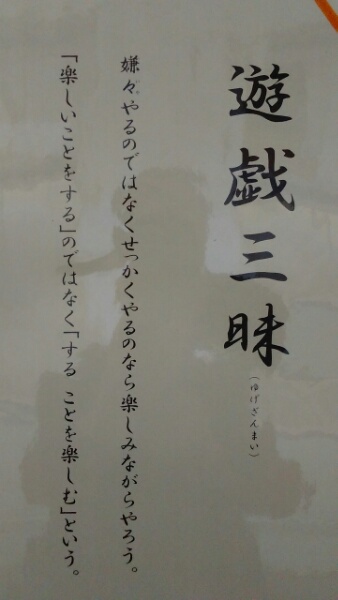 遊戯三昧
(ゆげざんまい)
嫌々やるのではなくせっかくやるのなら楽しみながらやろう。
「楽しいことをする」のではなく「する ことを楽しむ」という。